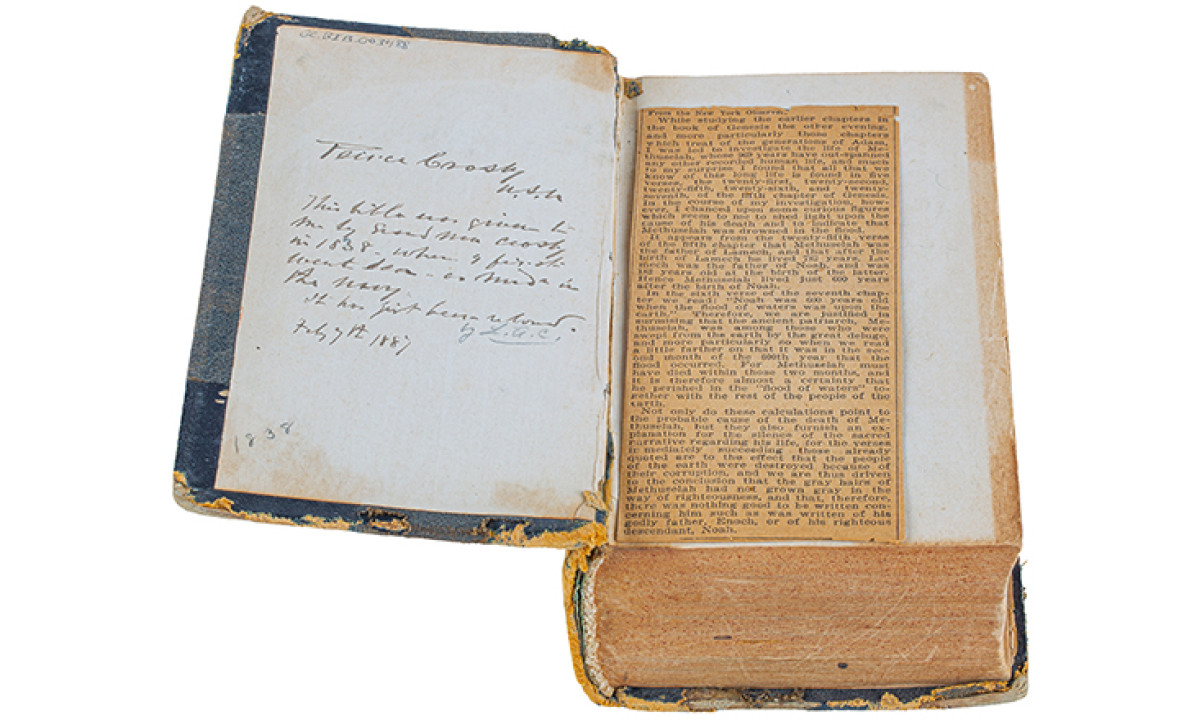 SC.BIB.003488
Peirce Crosby
U.S.N
This bible was given to
me by Grand Ma Crosby
in 1838 - when I first
went to sea - as Mid. in
the navy.
It has just been rebound.
by L. A. C.
Feby 7th 1887
1838
From the New York Observer.
While studying the earlier chapters in
the book of Genesis the other evening,
and more particularly those chapters
which treat of the generations of Adam,
I was led to investigate the life of Me-
thuselah, whose 969 years have out-spanned
any other recorded human life, and much
to my surprise I found that all that we
know of this long life is found in five
verses, the twenty-first, twenty-second,
twenty-fifth, twenty-sixth, and twenty-
seventh, of the fifth chapter of Genesis.
In the course of my investigation, how-
ever, I chanced upon some curious figures
which seem to me to shed light upon the
cause of his death and to indicate that
Methuselah was drowned in the flood.
It appears from the twenty-fifth verse
of the fifth chapter that Methuselah was
the father of Lamech, and that after the
birth of Lamech he lived 782 years. La-
mech was the father of Noah, and was
182 years old at the birth of the latter.
Hence Methuselah lived just 600 years
after the birth of Noah.
In the sixth verse of the seventh chap-
ter we read: "Noah was 600 years old
when the flood of waters was upon the
earth." Therefore, we are justified in
surmising that the ancient patriarch, Me-
thuselah, was among those who were
swept from the earth by the great deluge,
and more particularly so when we read
a little farther on that it was in the sec-
ond month of the 600th year that the
flood occurred. For Methuselah must
have died within those two months, and
it is therefore almost a certainty that
he perished in the "flood of waters" to-
gether with the rest of the people of the
earth.
Not only do these calculations point to
the probable cause of the death of Me-
thuselah, but they also furnish an ex-
planation for the silence of the sacred
narrative regarding his life, for the verses
immediately succeeding those already
quoted are to the effect that the people
of the earth were destroyed because of
their corruption, and we are thus driven
to the conclusion that the gray hairs of
Methuselah had not grown gray in the
way of righteousness, and that, therefore,
there was nothing good to be written con-
cerning him such as was written of his
godly father, Enoch, or of his righteous
descendant, Noah.